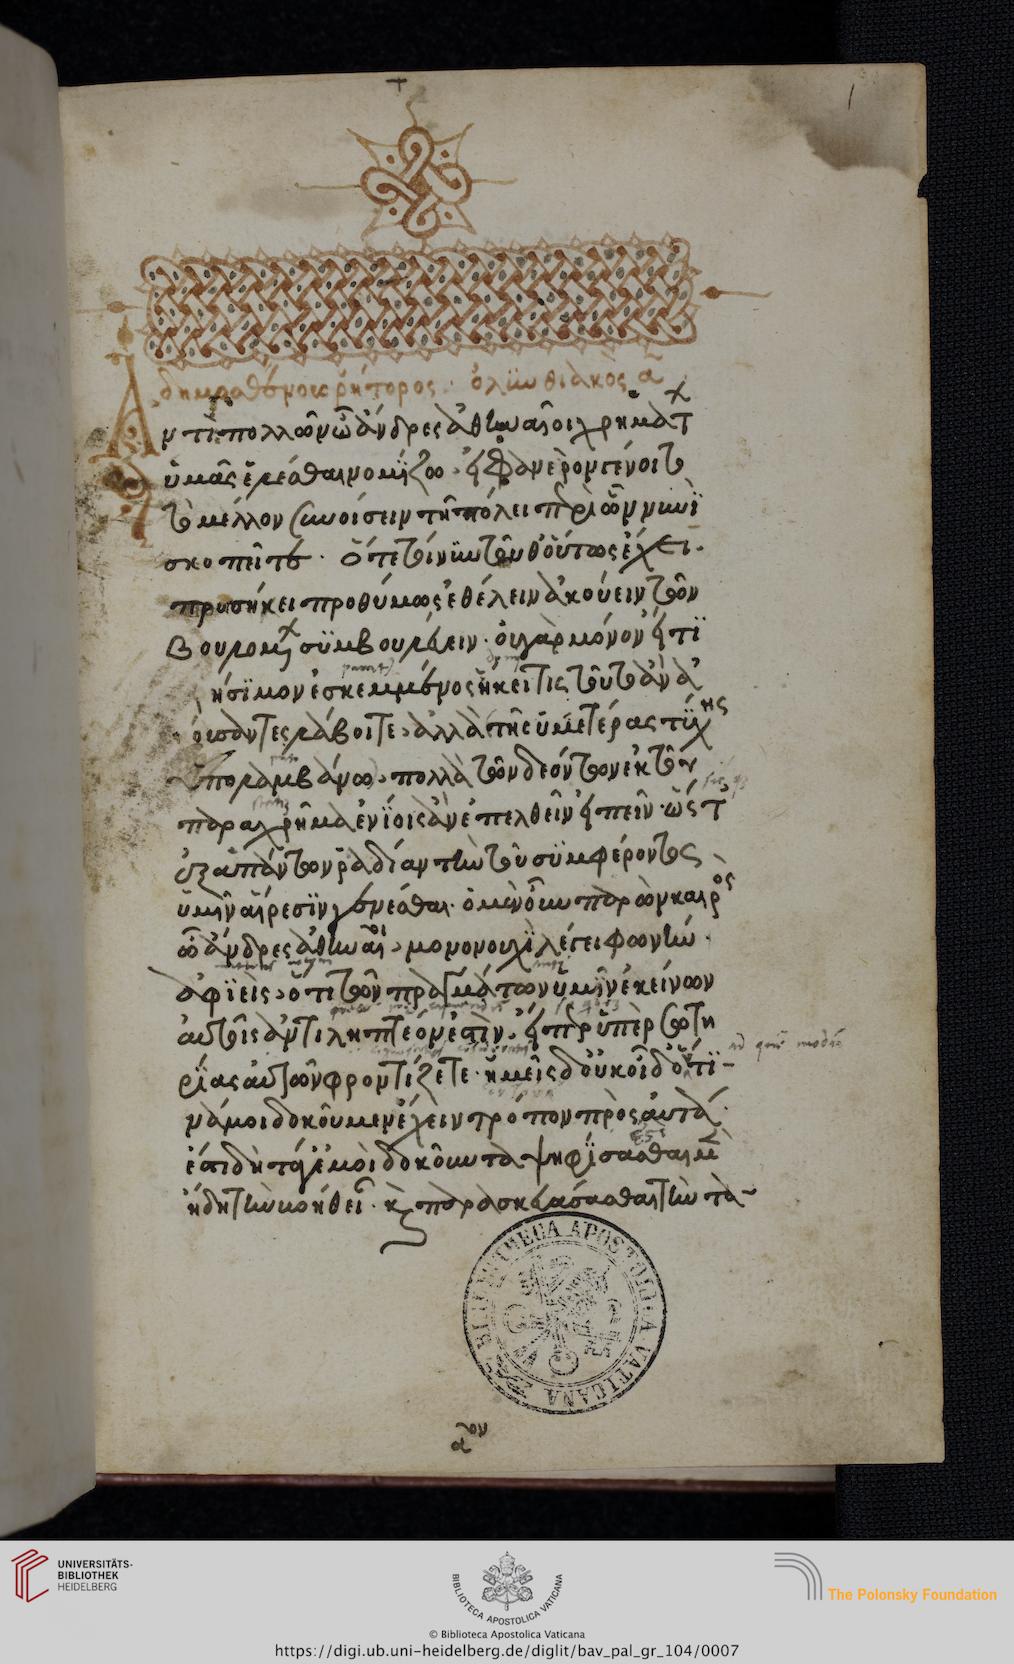 1
δημοσθένους ῥήτορος· ὀλυνθιακὸς α
Ἀντὶ πολλῶν ὦ ἄνδρες ἀθηναῖοι χρημάτ
ὑμᾶς ἑλέσθαι νομίζω· εἰ φανερὸν γένοιτο
τὸ μέλλον συνοίσειν τῆ πόλει περὶ ὧν νυνὶ
σκοπεῖτε· ὅτε τοίνυν τοῦθ' οὕτως ἔχει·
προσήκει προθύμως ἐθέλειν ἀκούειν τῶν
βουλομένων συμβουλεύειν· οὐ γὰρ μόνον εἴ τι
χρήσιμον ἐσκεμμένος ἥκει τις τοῦτο ἂν ἀ
κούσαντες λάβοιτε· ἀλλὰ τῆς ὑμετέρας τύχης
ὑπολαμβάνω· πολλὰ τῶν δεόντων ἐκ τοῦ
παραχρῆμα ἐνίοις ἂν ἐπελθεῖν εἰπεῖν· ὥς τ'
ἐξ ἁπάντων ῥαδίαν τὴν τοῦ συμφέροντος
ὑμῖν αἵρεσιν γενέσθαι· ὁ μὲν οὖν παρὼν καιρὸς
ὦ ἄνδρες ἀθηναῖοι· μονονουχὶ λέγει φωνὴν
ἀφιεὶς· ὅτι τῶν πραγμάτων ὑμῖν ἐκείνων
αὐτοῖς ἀντιληπτέον ἐστὶν· εἴπερ ὑπὲρ σωτη
ρίας αὐτῶν φροντίζετε· ἡμεῖς δ' οὐκ οἶδ' ὅντι-
νά μοι δοκοῦμεν ἔχειν τρόπον πρὸς αὐτά·
ἔστι δὴ τά γ' ἐμοὶ δοκοῦντα ψηφίσασθαι μὲν
ἤδη τὴν βοήθειαν· καὶ παρασκευάσασθαι τὴν τα-
BIBLIOTHECA APOSTOLICA VATICANA
αον
UNIVERSITÄTS-
BIBLIOTHEK
HEIDELBERG
BIBLIOTECA APOSTOLICA VATICANA
The Polonsky Foundation
© Biblioteca Apostolica Vaticana
https://digi.ub.uni-heidelberg.de/diglit/bav_pal_gr_104/0007